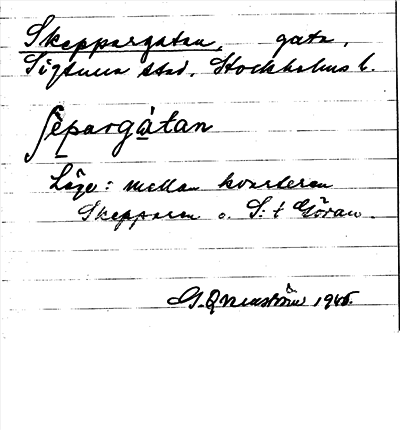 Skeppargatan, gata,
Sigtuna stad, Stockholms l.
ʃèpargàtan
Läge: mellan kvarteren
Skepparen o. S:t Göran.
G. Qvarnström 1945.